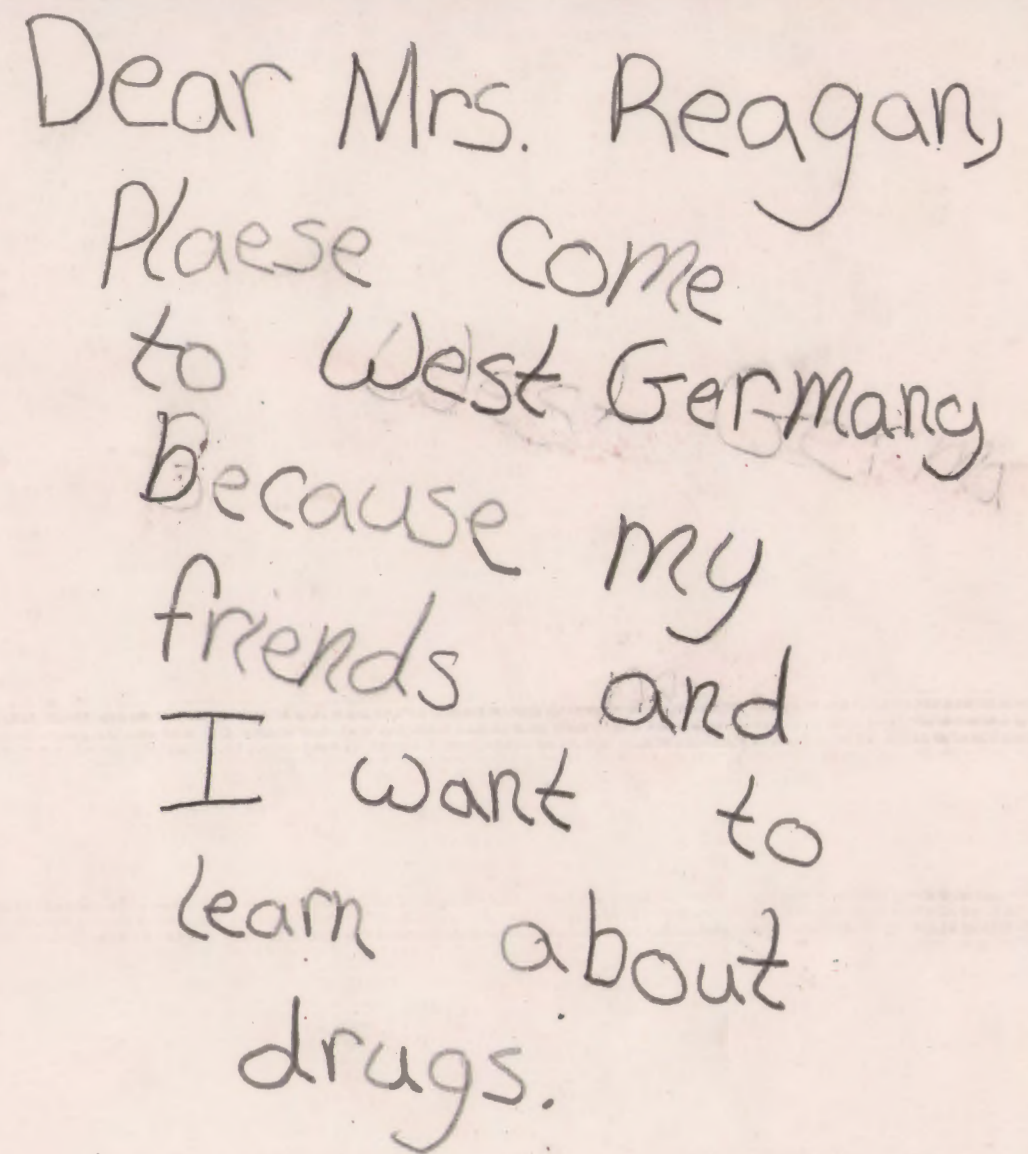 Dear Mrs. Reagan,
Plaese come
to West Germany
because my
friends and
I want to
learn about
drugs.